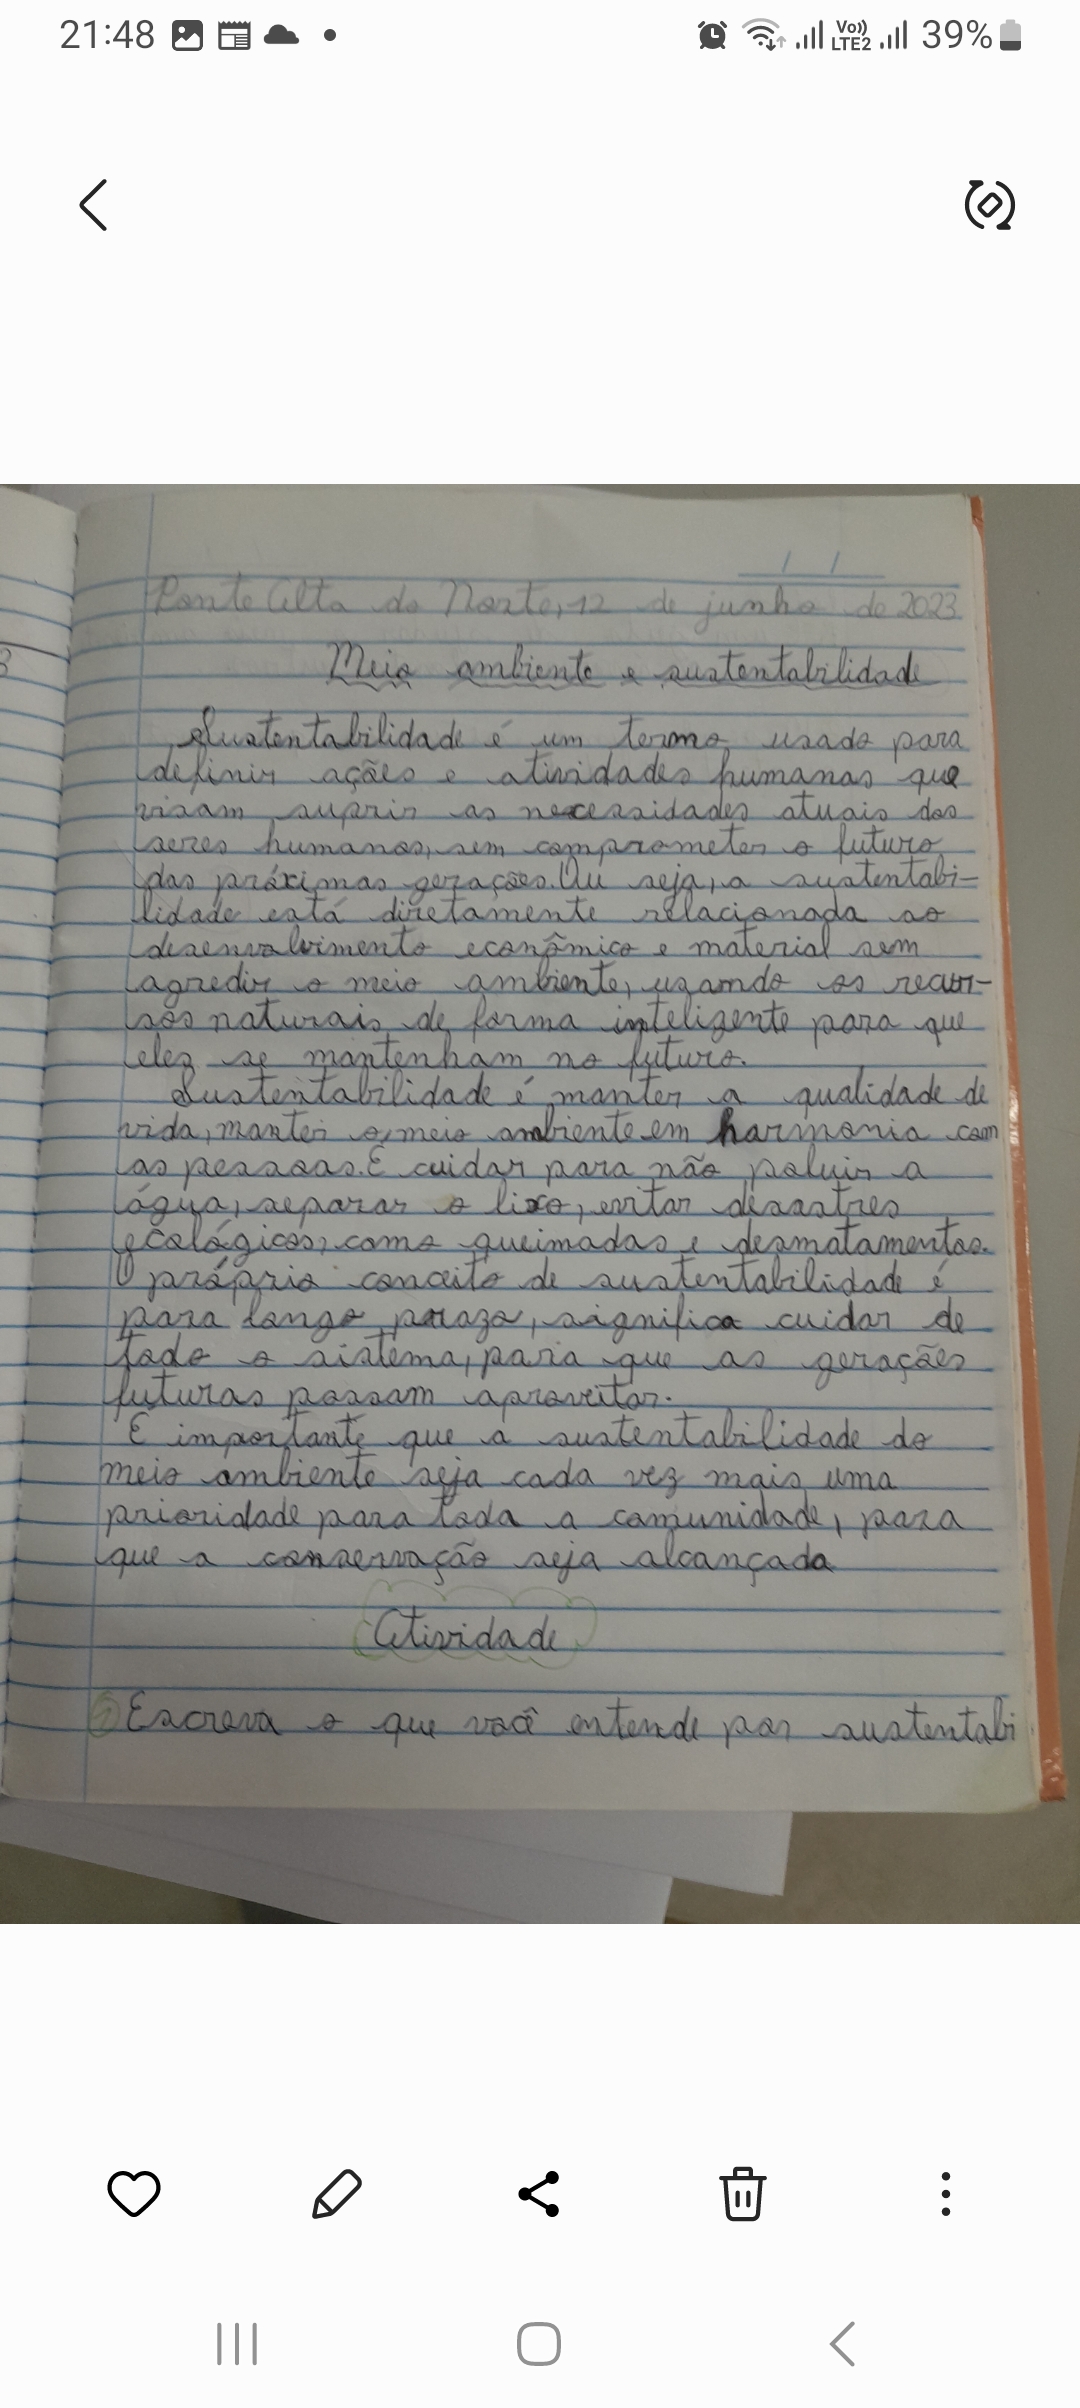 21:48
Vo)) LTE2 39%
Ponte Alta do Norte, 12 de junho de 2023
Meio ambiente e sustentabilidade
Sustentabilidade é um termo usado para
definir ações e atividades humanas que
visam suprir as necessidades atuais dos
seres humanos, sem comprometer o futuro
das próximas gerações. Ou seja, a sustentabi-
lidade está diretamente relacionada ao
desenvolvimento econômico e material sem
agredir o meio ambiente, usando os recur-
sos naturais de forma inteligente para que
eles se mantenham no futuro.
Sustentabilidade é manter a qualidade de
vida, manter o meio ambiente em harmonia com
as pessoas. É cuidar para não poluir a
água, separar o lixo, evitar desastres
ecológicos, como queimadas e desmatamentos.
O próprio conceito de sustentabilidade é
para longo prazo, significa cuidar de
todo o sistema, para que as gerações
futuras possam aproveitar.
É importante que a sustentabilidade do
meio ambiente seja cada vez mais uma
prioridade para toda a comunidade, para
que a conservação seja alcançada
Atividade
1 Escreva o que você entende por sustentabi